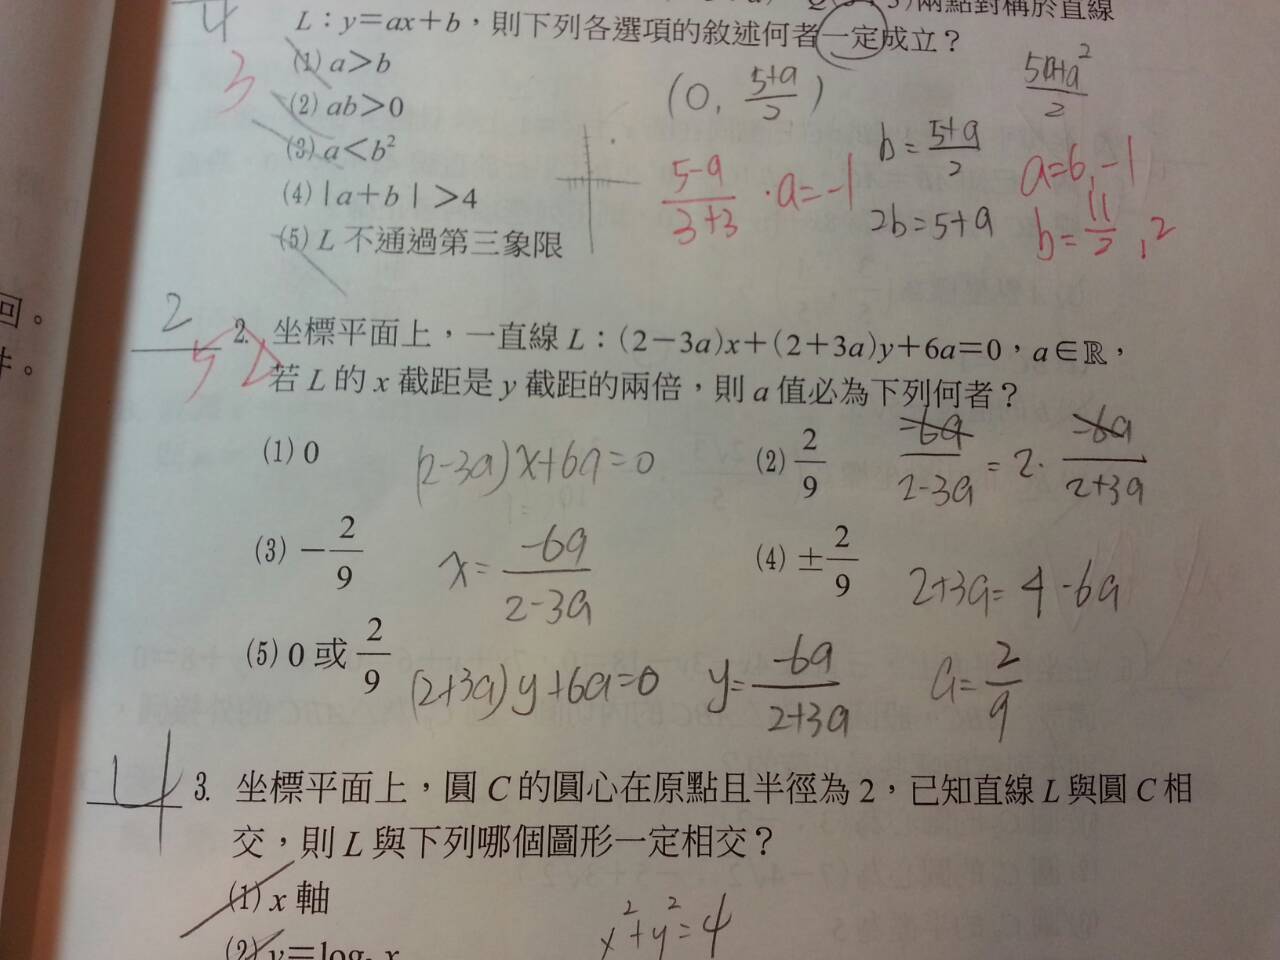 兩點對稱於直線
4
L：y＝ax＋b，則下列各選項的敘述何者一定成立？
3
(1) a＞b
(2) ab＞0
(3) a＜b²
(4) | a＋b | ＞4
(5) L 不通過第三象限
(0, (5+a)/2)
b = (5+a)/2
2b = 5+a
(5-a)/(3+3) · a = -1
a = 6, -1
b = 11/2, 2
回。
2
2. 坐標平面上，一直線 L：(2－3a)x＋(2＋3a)y＋6a＝0，a∈ℝ，
若 L 的 x 截距是 y 截距的兩倍，則 a 值必為下列何者？
(1) 0
(2-3a)x+6a=0
(2) 2/9
-6a/(2-3a) = 2· -6a/(2+3a)
(3) －2/9
x = -6a/(2-3a)
(4) ±2/9
2+3a = 4-6a
(5) 0 或 2/9
(2+3a)y+6a=0
y = -6a/(2+3a)
a = 2/9
4
3. 坐標平面上，圓 C 的圓心在原點且半徑為 2，已知直線 L 與圓 C 相
交，則 L 與下列哪個圖形一定相交？
(1) x 軸
x²+y²=4
(2) y＝log₂ x